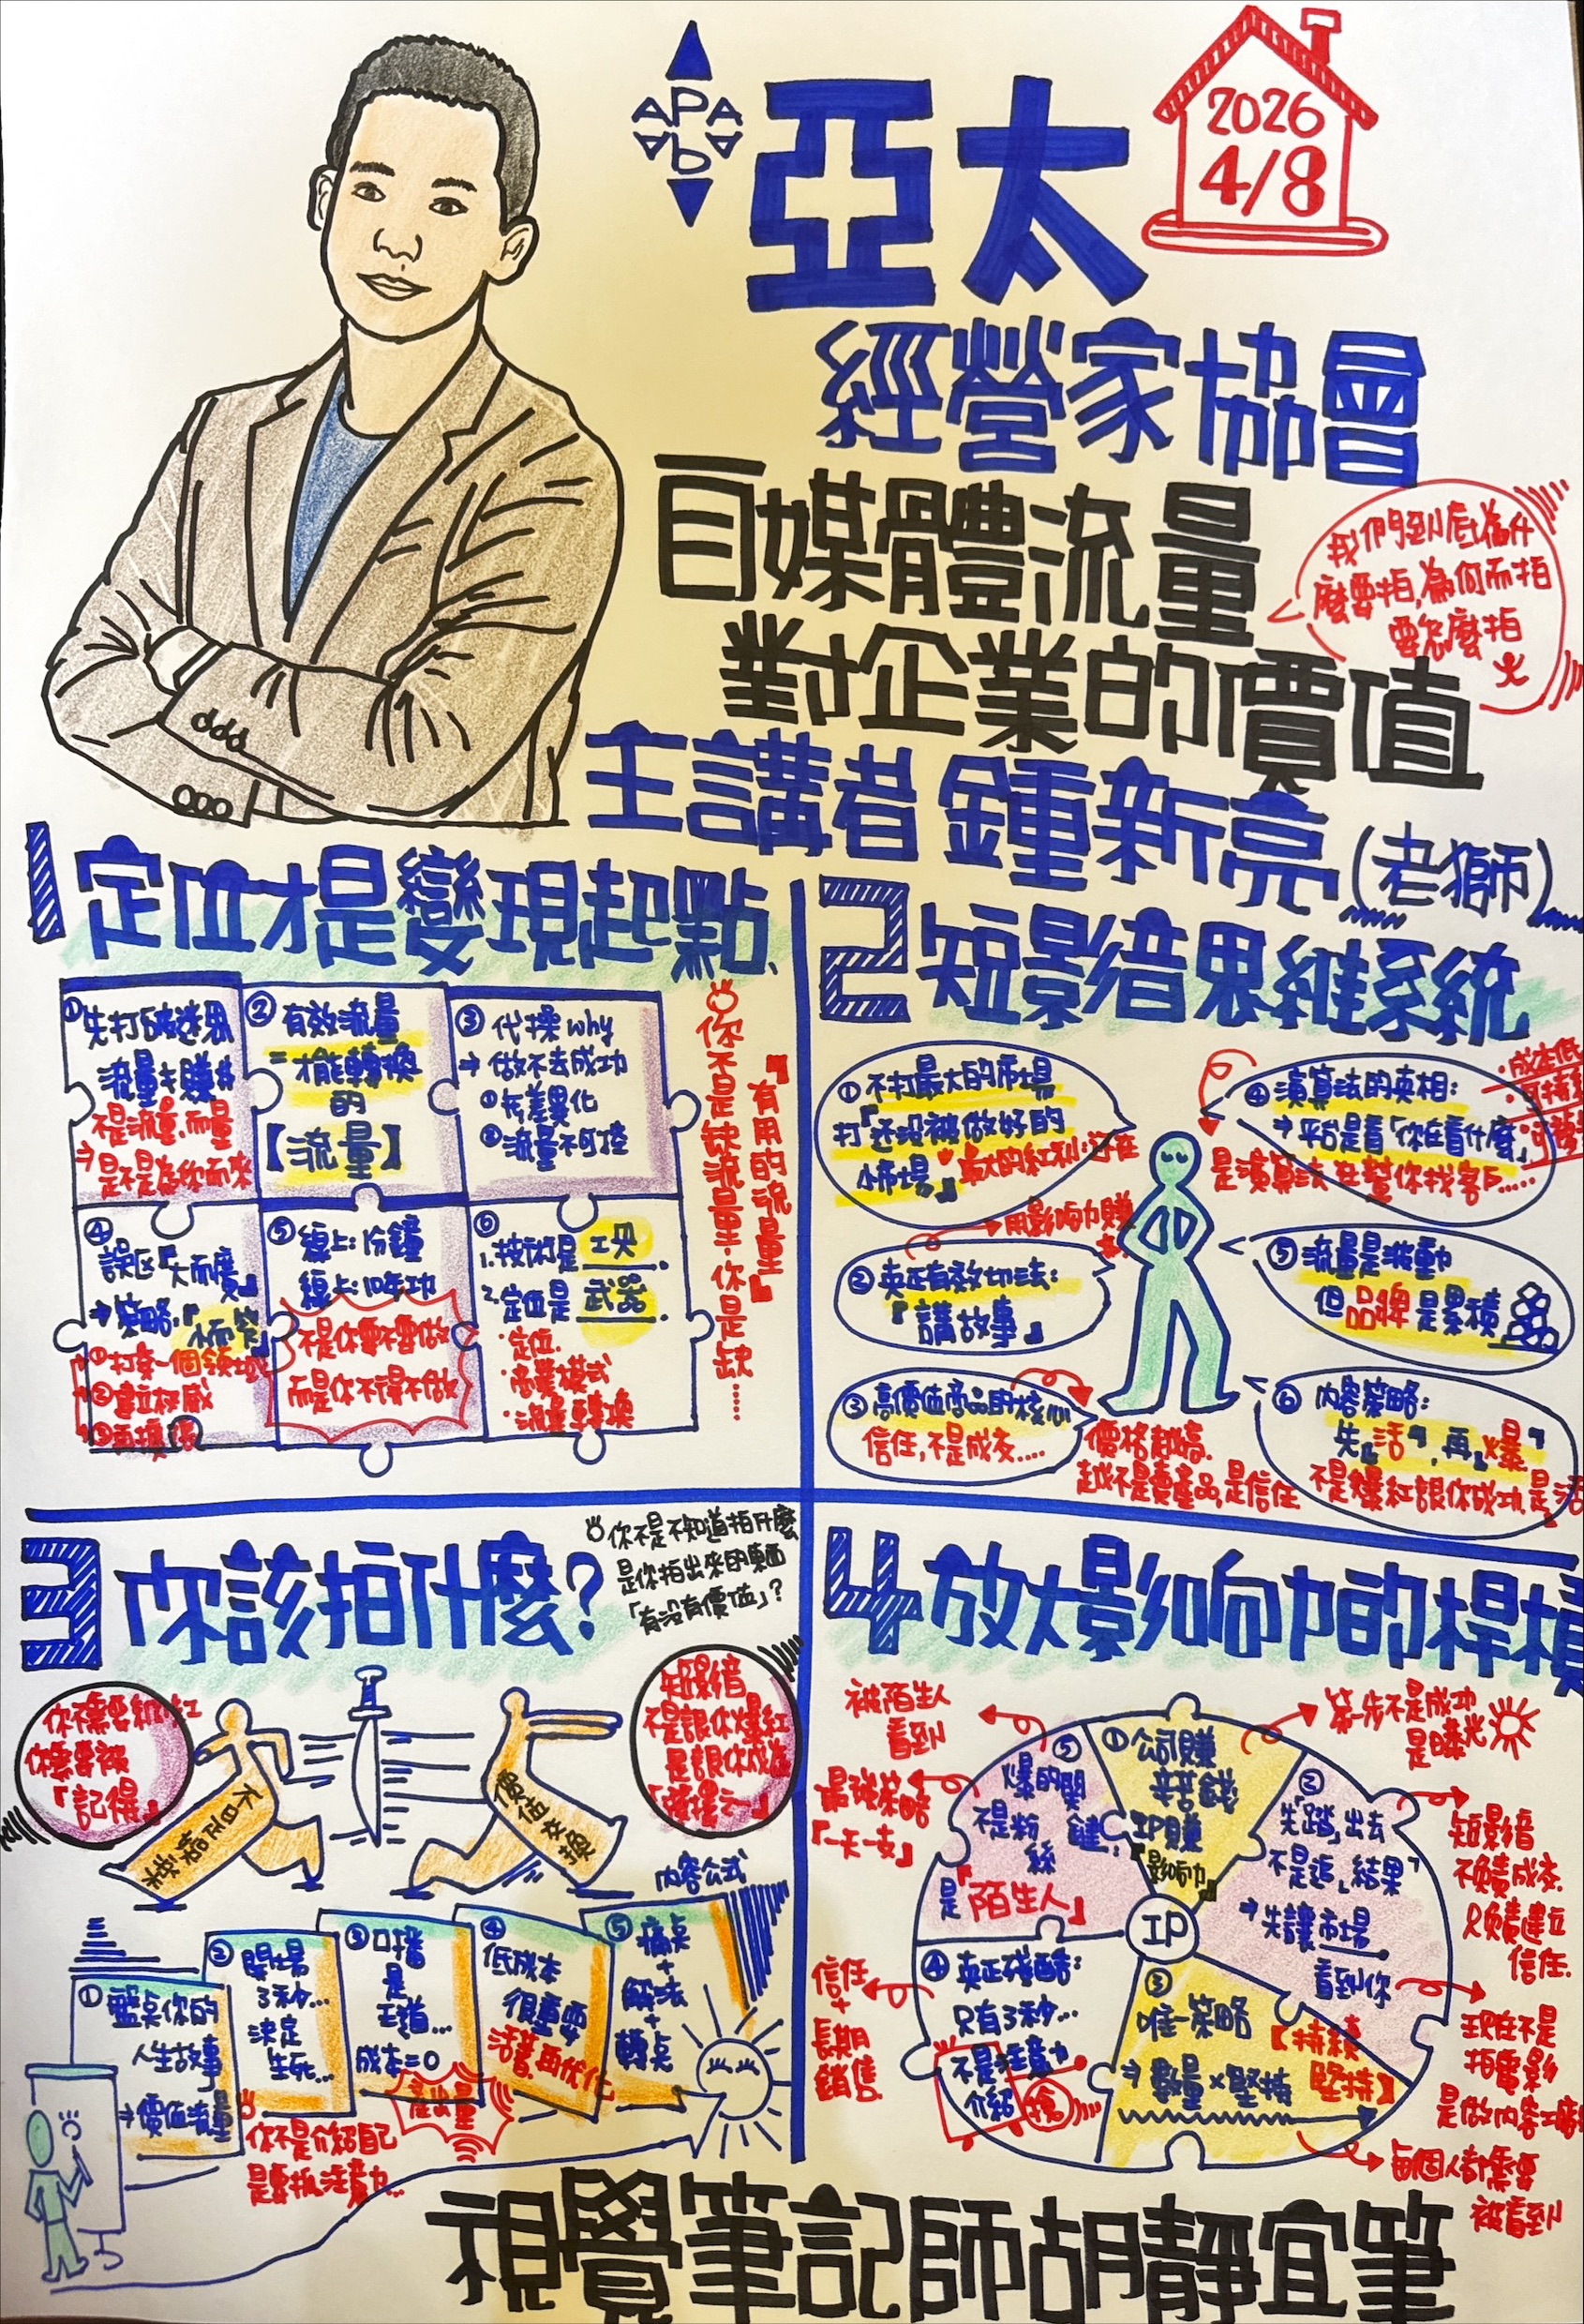 APAA
2026
4/8
亞太
經營家協會
自媒體流量
對企業的價值
我們到底為什
麼要拍,為何而拍
要怎麼拍
主講者 鍾新亮(老獅)
1 定位才是變現起點
①先打破迷思
流量≠賺錢
不是流量,而量
⇒是不是為你而來
② 有效流量
=才能轉換
的
【流量】
③ 代操why
⇒ 做不去成功
①无差異化
②流量不可控
④
誤区『大而廣』
⇒策略,『小而窄』
①打穿一個領域
②建立权威
③再擴張
⑤
線上:1份鐘
線上:10年功
不是你要不要做
而是你不得不做
⑥
1.技術是 工具.
2.定位是 武器.
·定位.
·商業模式
·流量轉換
你不是缺流量,你是缺......
『有用的流量』
2 短影音思維系統
① 不打最大的市場
打『还没被做好的
小市場』
最大的紅利:还在
用影响力賺
② 真正有效切法:
『講故事』
③ 高價值商品的核心
信任,不是成交....
價格越高,
越不是賣產品,是信任
④ 演算法的真相:
⇒ 平台是看「你在看什麼」
是演算法 在幫你找客戶.....
·成本低
⑤ 流量是波動
但品牌是累積
⑥ 內容策略:
先『活』,再『爆』
不是爆紅讓你成功,是活
3 你該拍什麼?
你不是不知道拍什麼
是你拍出來的東西
「有沒有價值」?
你不需要網紅
你需要被
『記得』
短影音
不是讓你爆紅
是讓你成為
價值交換
內容公式
① 盤點你的
人生故事
⇒價值流量
② 開場
3秒...
決定
生死...
你不是介紹自己
是要抓注意力...
③ 口播
是
王道...
成本=0
④
低成本
很重要
活著,再优化
⑤ 痛點
+
解法
+
轉點
4 放大影响力的槓桿
① 公司賺
辛苦錢
IP賺
『影响力』
第一步不是成功
是曝光
② 先「踏」出去
不是追「結果」
⇒先讓市場
看到你
短影音
不負責成交,
只負責建立
信任.
現在不是
拍電影
是做內容工廠
③
唯一策略
⇒ 數量×堅持
【持續
堅持】
每個人都需要
被看到
④ 真正殘酷:
只有3秒...
不是注意力
介紹 搶
信任
+
長期
銷售.
⑤
爆的関鍵:
不是粉絲
是『陌生人』
被陌生人
看到
最強策略
『一天一支』
IP
視覺筆記師胡靜宜筆